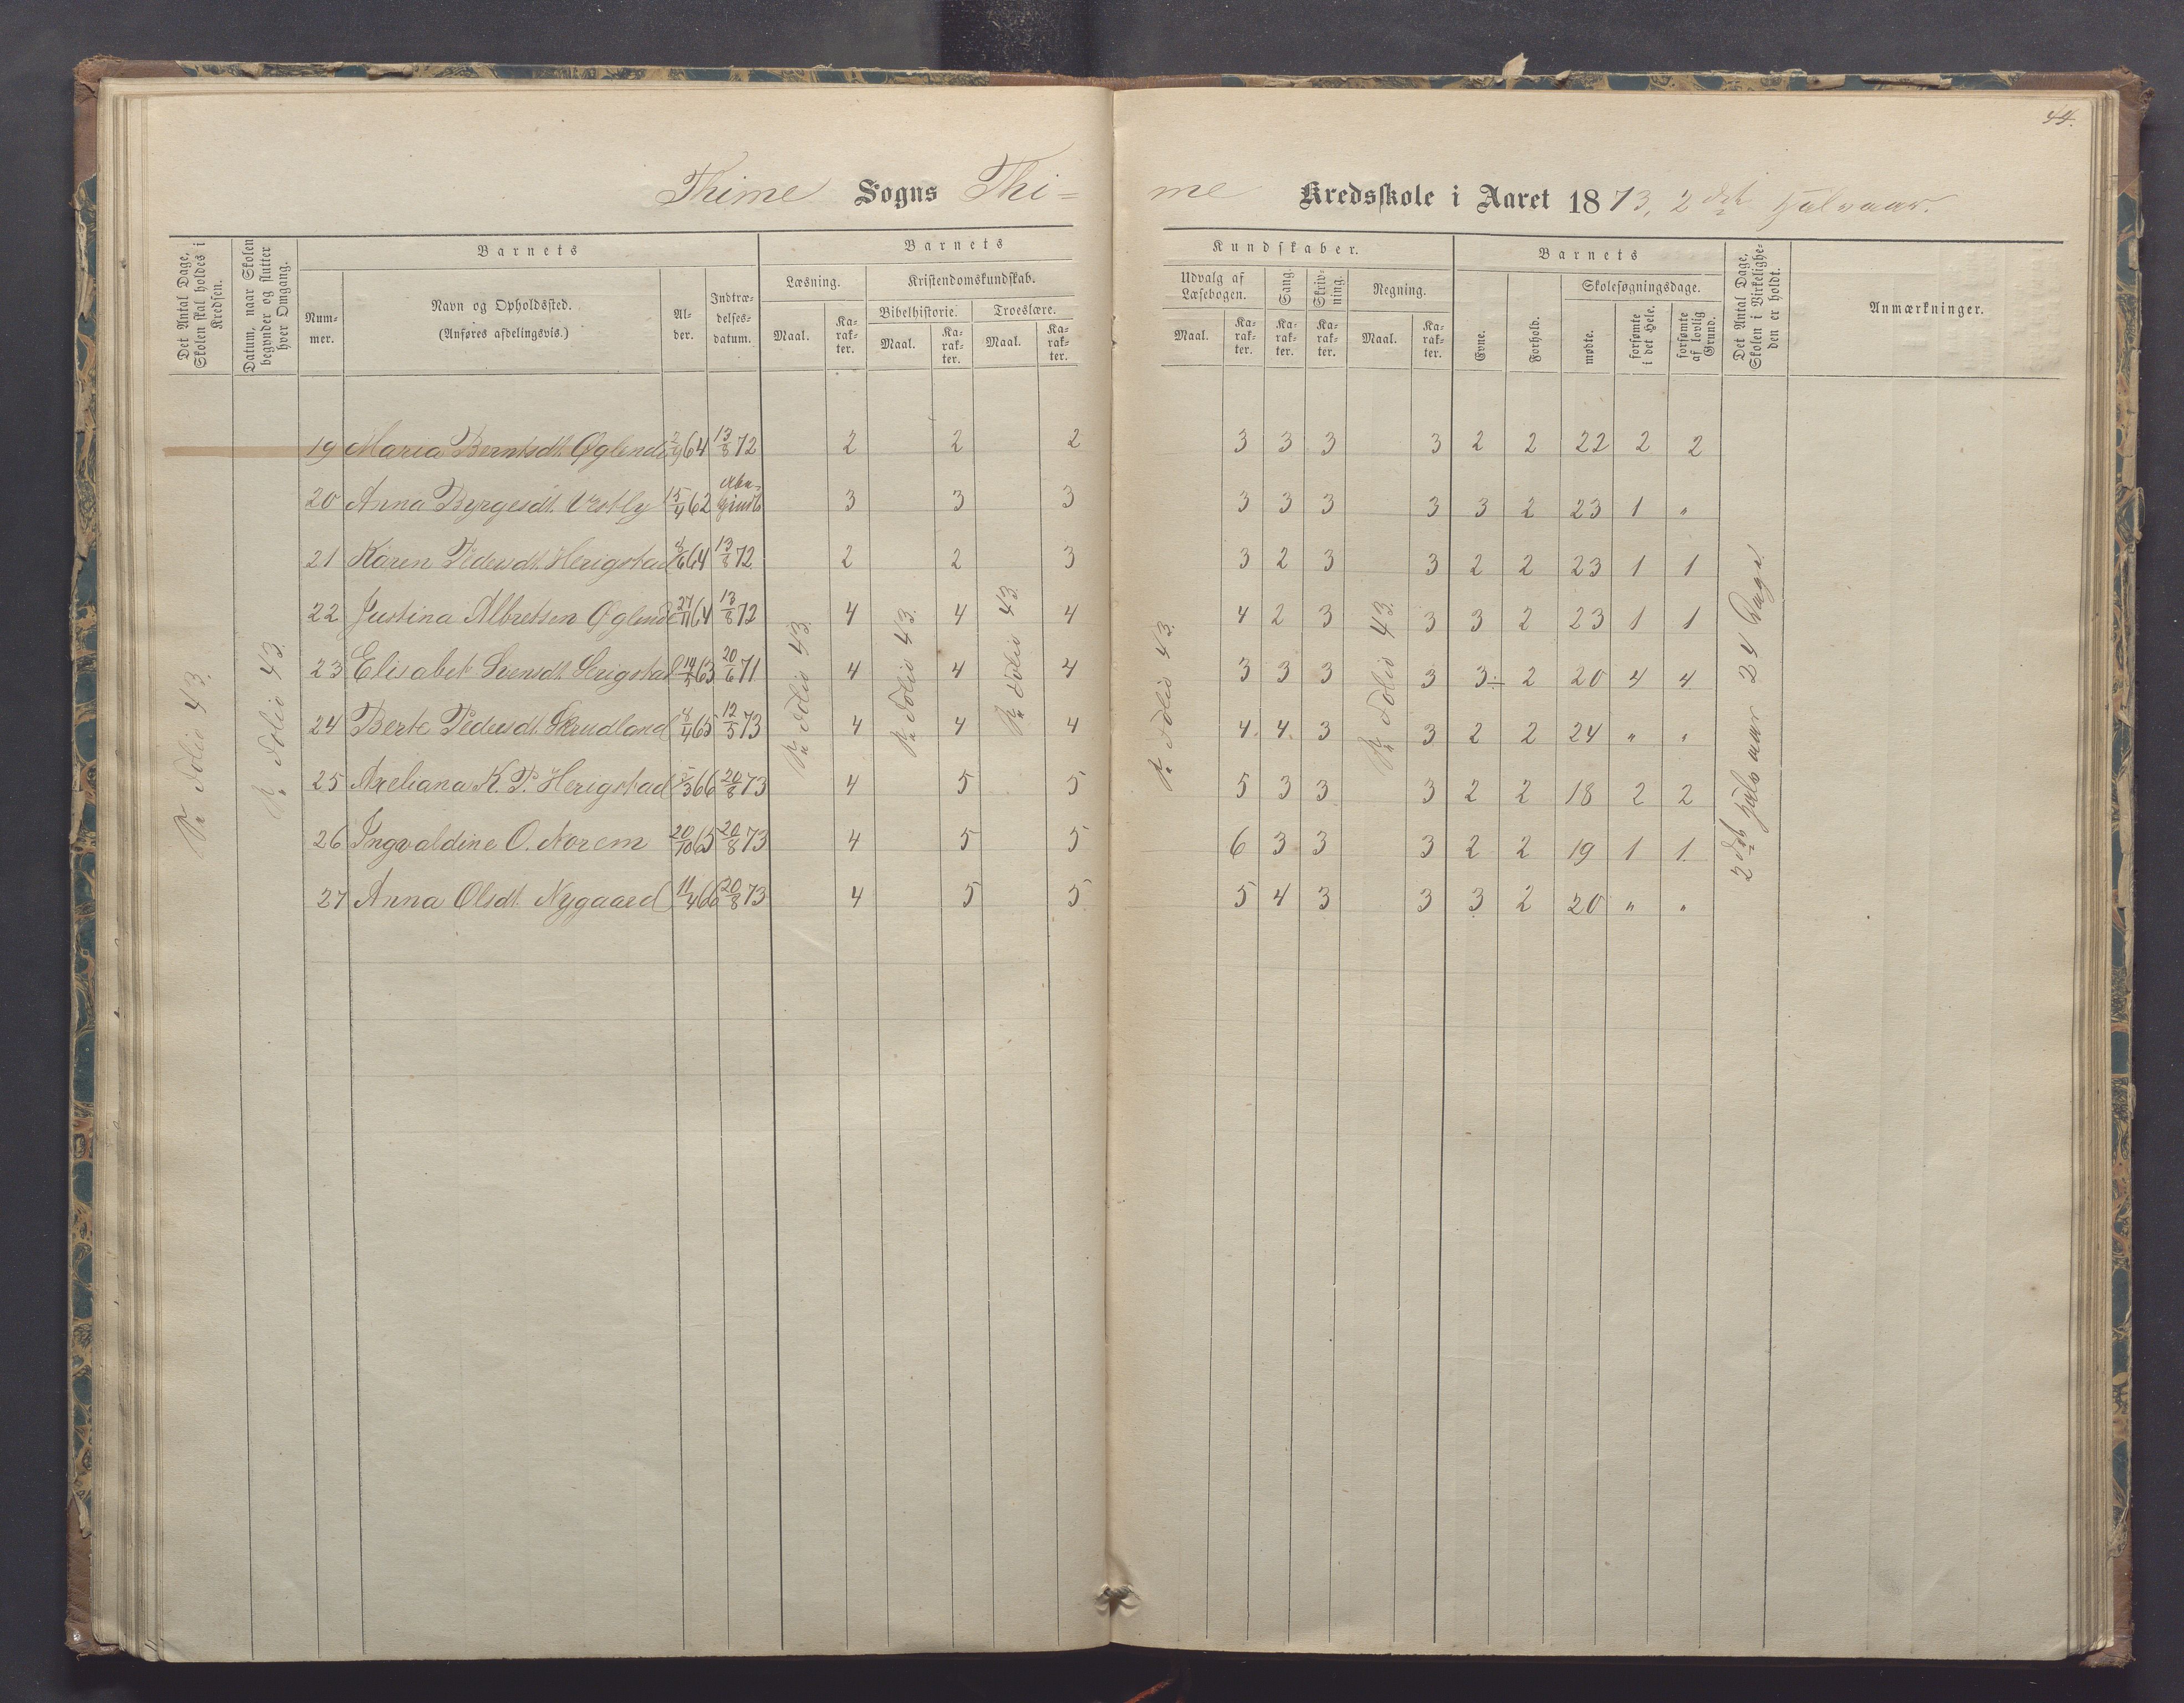 44.
Thime Sogns Thi= me Kredsskole i Aaret 1873, 2det Halvaar.
Det Antal Dage, Skolen skal holdes i Kredsen.
Datum, naar Skolen begynder og slutter hver Omgang.
Barnets
Num= mer.
Navn og Opholdssted.
(Anføres afdelingsvis.)
Al= der.
Indtræ= delses= datum.
Barnets
Læsning.
Maal.
Ka= rak= ter.
Kristendomskundskab.
Bibelhistorie.
Maal.
Ka= rak= ter.
Troeslære.
Maal.
Ka= rak= ter.
Kundskaber.
Udvalg af Læsebogen.
Maal.
Ka= rak= ter.
Sang.
Ka= rak= ter.
Skriv= ning.
Ka= rak= ter.
Regning.
Maal.
Ka= rak= ter.
Barnets
Evne.
Forhold.
Skolesøgningsdage.
mødte.
forsømte i det Hele.
forsømte af lovlig Grund.
Det Antal Dage, Skolen i Virkelighe= den er holdt.
Anmærkninger.
19 Maria Berntsdt. Øglend 2/9 64 13/8 72 2 2 2 3 3 3 3 2 2 22 2 2
20 Anna Byrgesdt. Vestly 15/4 62 3 3 3 3 3 3 3 3 2 23 1 "
21 Karen Pedersdt. Herigstad 8/6 64 13/8 72 2 2 3 3 2 3 3 2 2 23 1 1
22 Justina Albretsen Øglend 27/11 64 13/8 72 4 4 4 4 2 3 3 3 2 23 1 1
23 Elisabet Svensdt. Herigstad 63 20/6 71 4 4 4 3 3 3 3 3÷ 2 20 4 4
24 Berte Pedersdt. Skrudland 8/4 65 12/5 73 4 4 4 4. 4. 3 3 2 2 24 " "
25 Axeliana K. P. Herigstad 5/3 66 20/8 73 4 5 5 5 3 3 3 2 2 18 2 2
26 Ingvaldine O. Norem 20/10 65 20/8 73 4 5 5 6 3 3 3 2 2 19 1 1.
27 Anna Olsdt. Nygaard 11/4 66 20/8 73 4 5 5 5 4 3 3 3 2 20 " "
Folio 43.
Folio 43.
Folio 43.
Folio 43.
Folio 43.
Folio 43.
Folio 43.
2det halvaar 24 Dage.